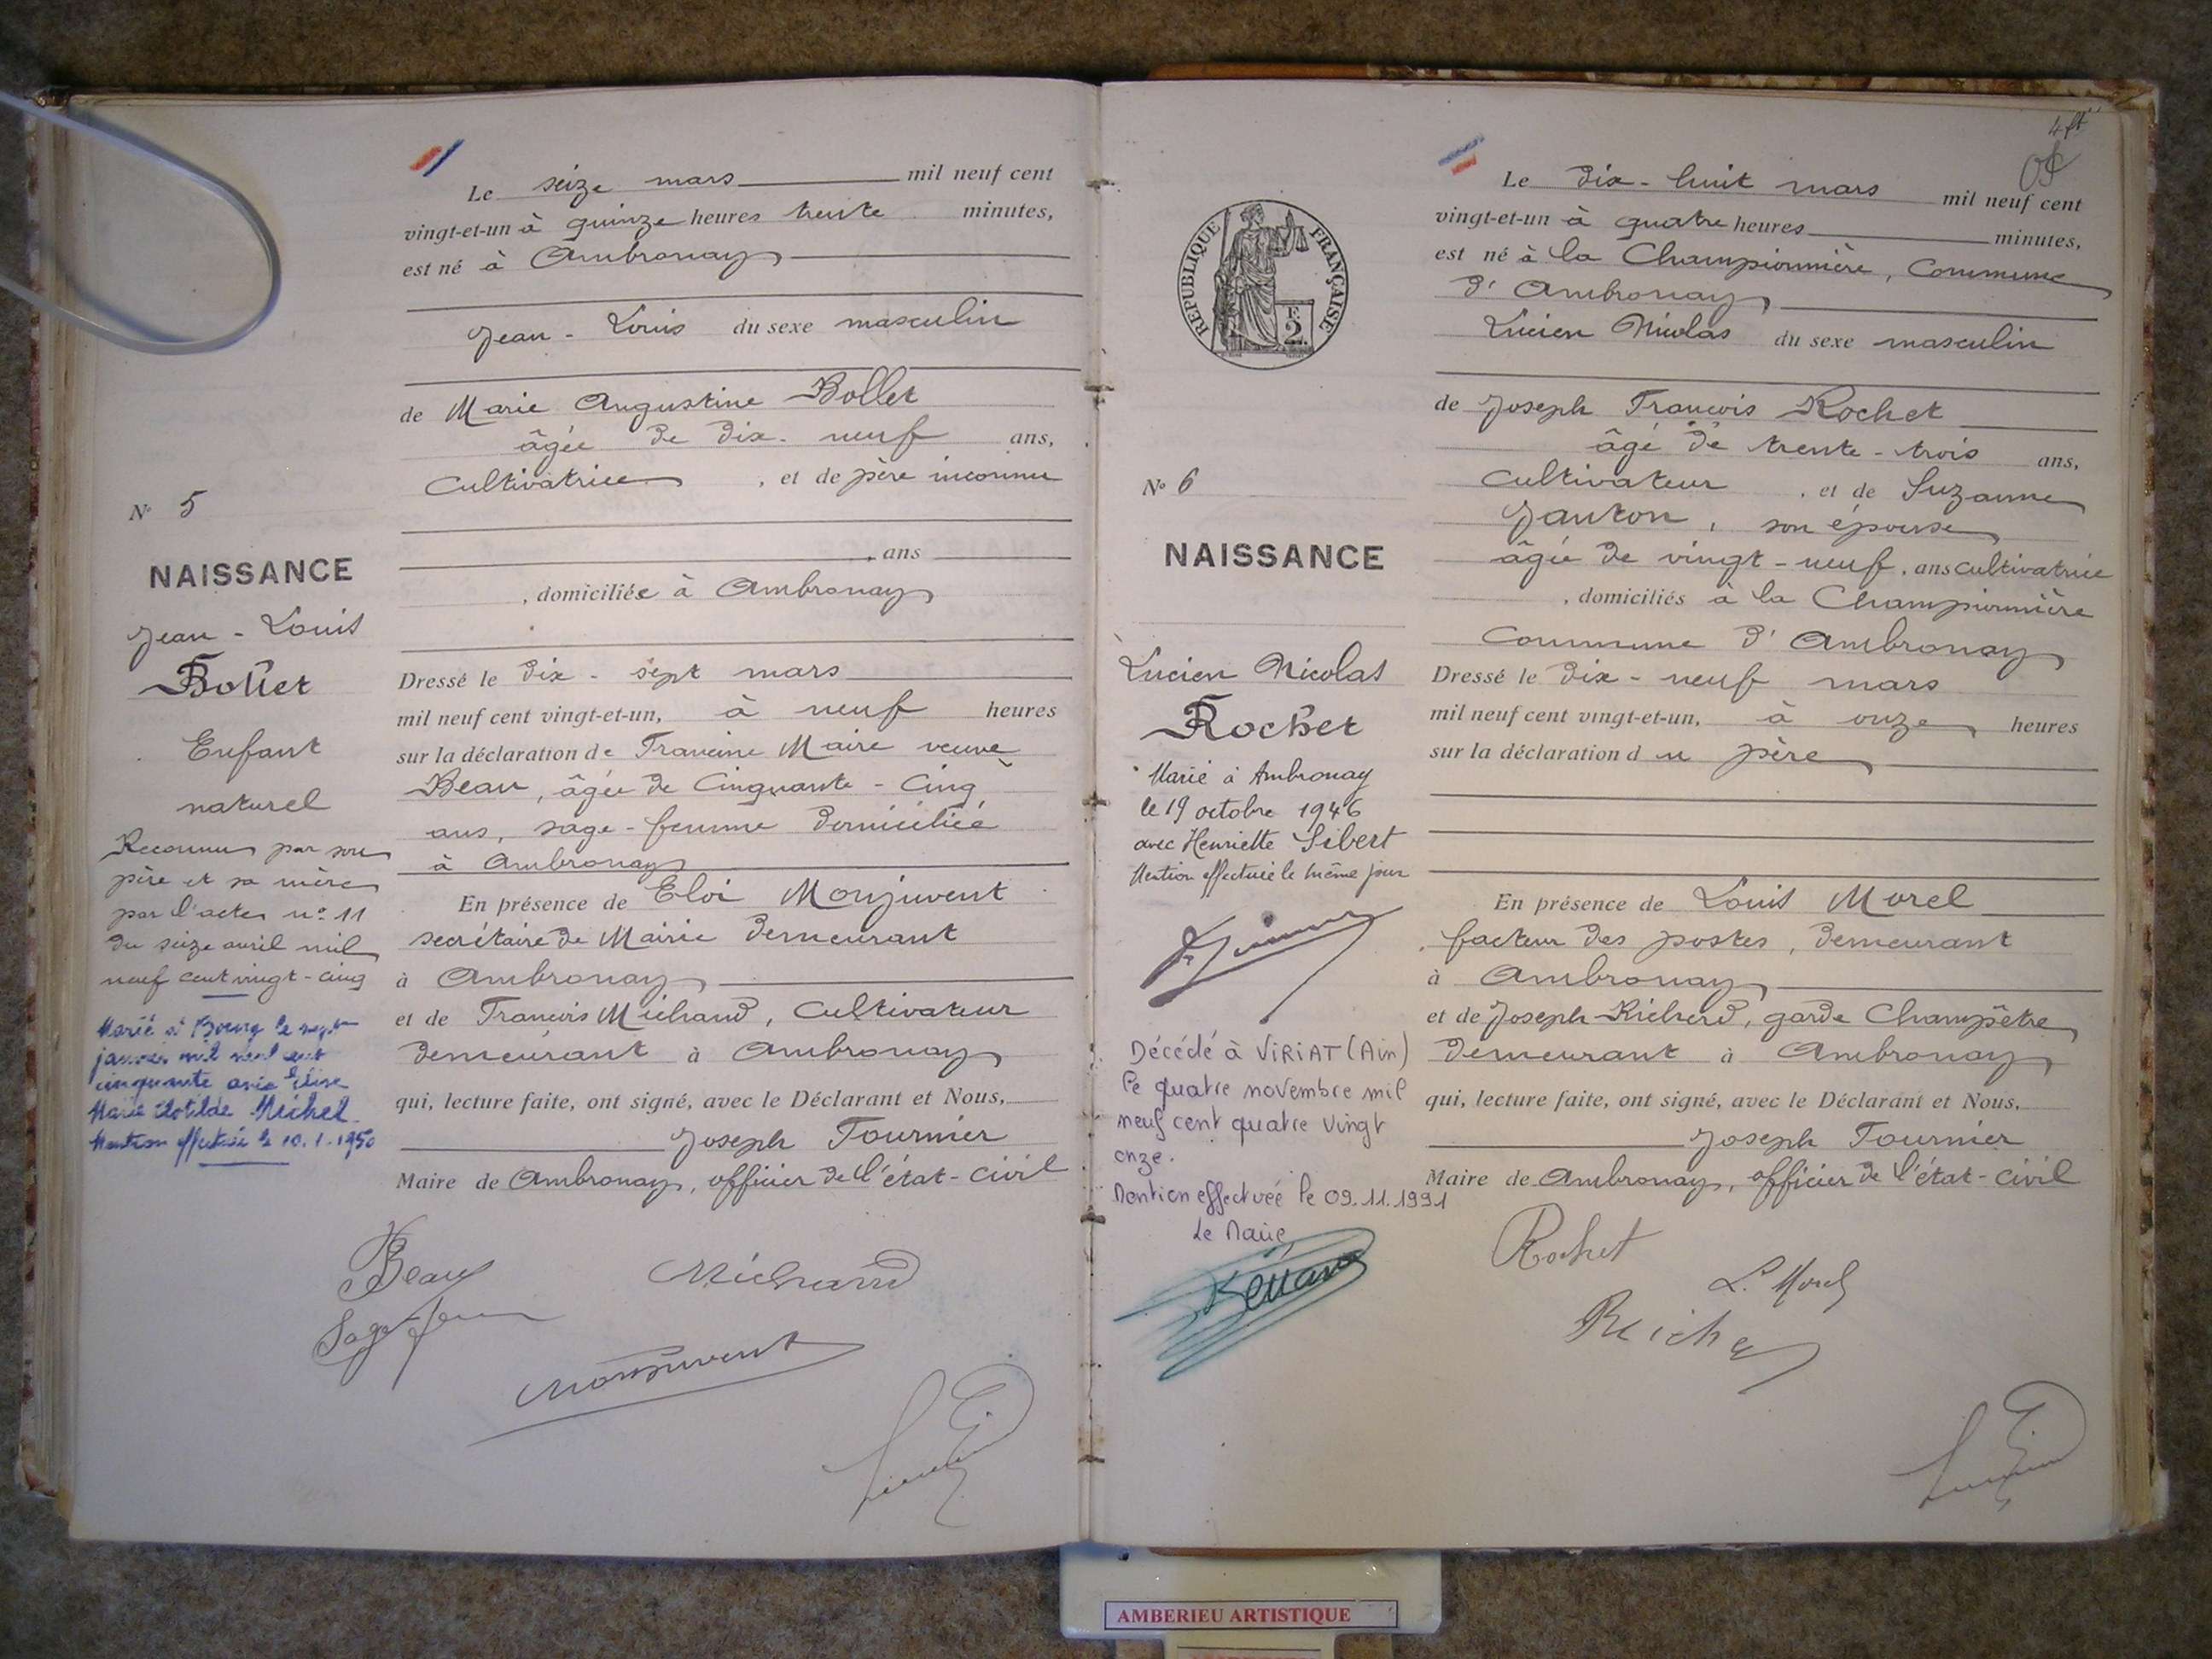 Le seize mars mil neuf cent
vingt-et-un à quinze heures trente minutes,
est né à Ambronay
Jean-Louis du sexe masculin
de Marie Augustine Bollet
âgée de dix-neuf ans,
Cultivatrice, et de père inconnu
, ans
, domiciliée à Ambronay
Dressé le dix-sept mars
mil neuf cent vingt-et-un, à neuf heures
sur la déclaration de Francine Maire veuve
Beau, âgée de Cinquante-Cinq
ans, sage-femme domiciliée
à Ambronay
En présence de Eloi Monjuvent
secrétaire de Mairie demeurant
à Ambronay
et de François Michaud, Cultivateur
demeurant à Ambronay
qui, lecture faite, ont signé, avec le Déclarant et Nous,
Joseph Tournier
Maire de Ambronay, officier de l'état-civil
Beau
Michaud
Sage-fem
Monjuvent
N° 5
NAISSANCE
Jean-Louis
Bollet
Enfant
naturel
Reconnu par son
père et sa mère
par l'acte n° 11
du seize avril mil
neuf cent vingt-cinq
Marié à Bourg le sept
janvier mil neuf cent
cinquante avec Elise
Marie Clotilde Michel
Mention effectuée le 10.1.1950
4 ft
Le dix-huit mars mil neuf cent
vingt-et-un à quatre heures minutes,
est né à la Championnière, Commune
d'Ambronay,
Lucien Nicolas du sexe masculin
de Joseph François Rochet
âgé de trente-trois ans,
Cultivateur, et de Suzanne
Janton, son épouse
âgée de vingt-neuf, ans cultivatrice
, domiciliés à la Championnière
Commune d'Ambronay
Dressé le dix-neuf mars
mil neuf cent vingt-et-un, à onze heures
sur la déclaration du père
En présence de Louis Morel
facteur des postes, demeurant
à Ambronay,
et de Joseph Richerd, garde Champêtre
demeurant à Ambronay
qui, lecture faite, ont signé, avec le Déclarant et Nous,
Joseph Tournier
Maire de Ambronay, officier de l'état-civil
Rochet
L. Morel
RÉPUBLIQUE FRANÇAISE
2
N° 6
NAISSANCE
Lucien Nicolas
Rochet
Marié à Ambronay
le 19 octobre 1946
avec Henriette Sibert
Mention effectuée le même jour
Décédé à VIRIAT (Ain)
le quatre novembre mil
neuf cent quatre vingt
onze.
Mention effectuée le 09.11.1991
Le Maire,
AMBERIEU ARTISTIQUE